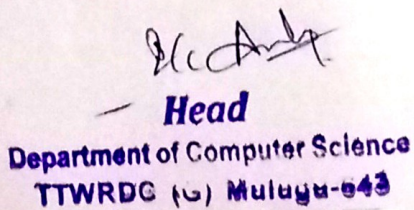 Head
Department of Computer Science
TTWRDC (G) Mulugu-343